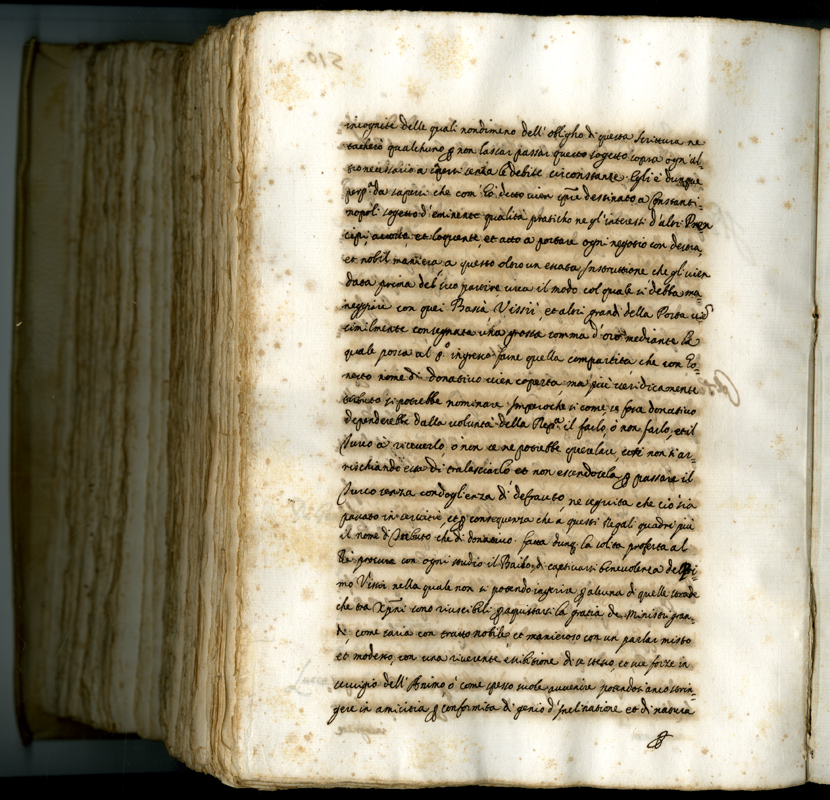 incognite delle quali nondimeno dell'obligho di questa scrittura ne
tacherò qualchuno p non lassar passar questo sogetto sopra ogn'al-
tro necessario a senza le debite circonstanze. Egli è dunque
da sapersi che com'ho detto vien destinato a Constanti=
nopoli sogetto d'eminente qualità pratticho ne gl'interessi d'altri Pren
cipi, accorto et loquente, et atto a portare ogni negotio con destra,
et nobil maniera a questo oltre un esatta Instruttione che gli vien
data prima del suo partire circa il modo col quale si debba ma=
neggiare con quei Bassà, Visiri, et altri grandi della Porta
similmente consegnata una grossa somma d'oro mediante la
quale possa al p.o ingresso farne quella compartita che con ho=
nesto nome di donativo vien coperta, ma più veridicamente
tributo si potrebbe nominare. Imperoche si come se fosse donativo
dependerebbe dalla volontà della Rep.a il farlo, ò non farlo, et il
Turco a riceverlo, ò non se ne potrebbe querelare, così non s'ar=
rischiando essa di tralasciarlo et non essendosela p passare il
Turco senza condoglienza di defrauto, ne seguita che ciò sia
passato in servitù, et p consequenza che a questi regali quadri più
il nome di Tributo che di donativo. fatta dunq. la solita proferta al
Rè procura con ogni studio il Bailo, di captivarsi benevolenza del Pri=
mo Visir nella quale non si potendo ingerire p alcuna di quelle strade
che tra Xpni sono riuscibili p aquistarsi la gratia de Ministri gran
di, come saria con tratto nobile, et manieroso con un parlar misto
et modesto, con una riverente esibitione di se stesso, et sue forze in
servigio dell'Animo ò come spesso suole avvenire potendosi anco strin=
gere in amicitia p conformità di genio d'Inclinatione et di natura